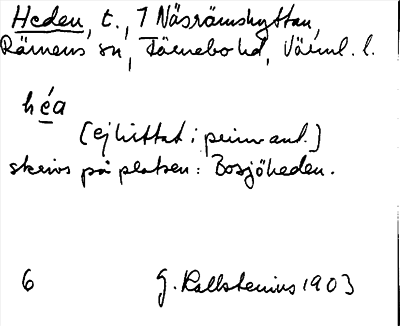 Heden, t., 7 Näsrämshyttan,
Rämens sn, Färnebo hd, Värml. l.
héa
(ej hittat i prim. ant.)
skrivs på platsen: Bosjöheden.
6 G. Kallstenius 1903